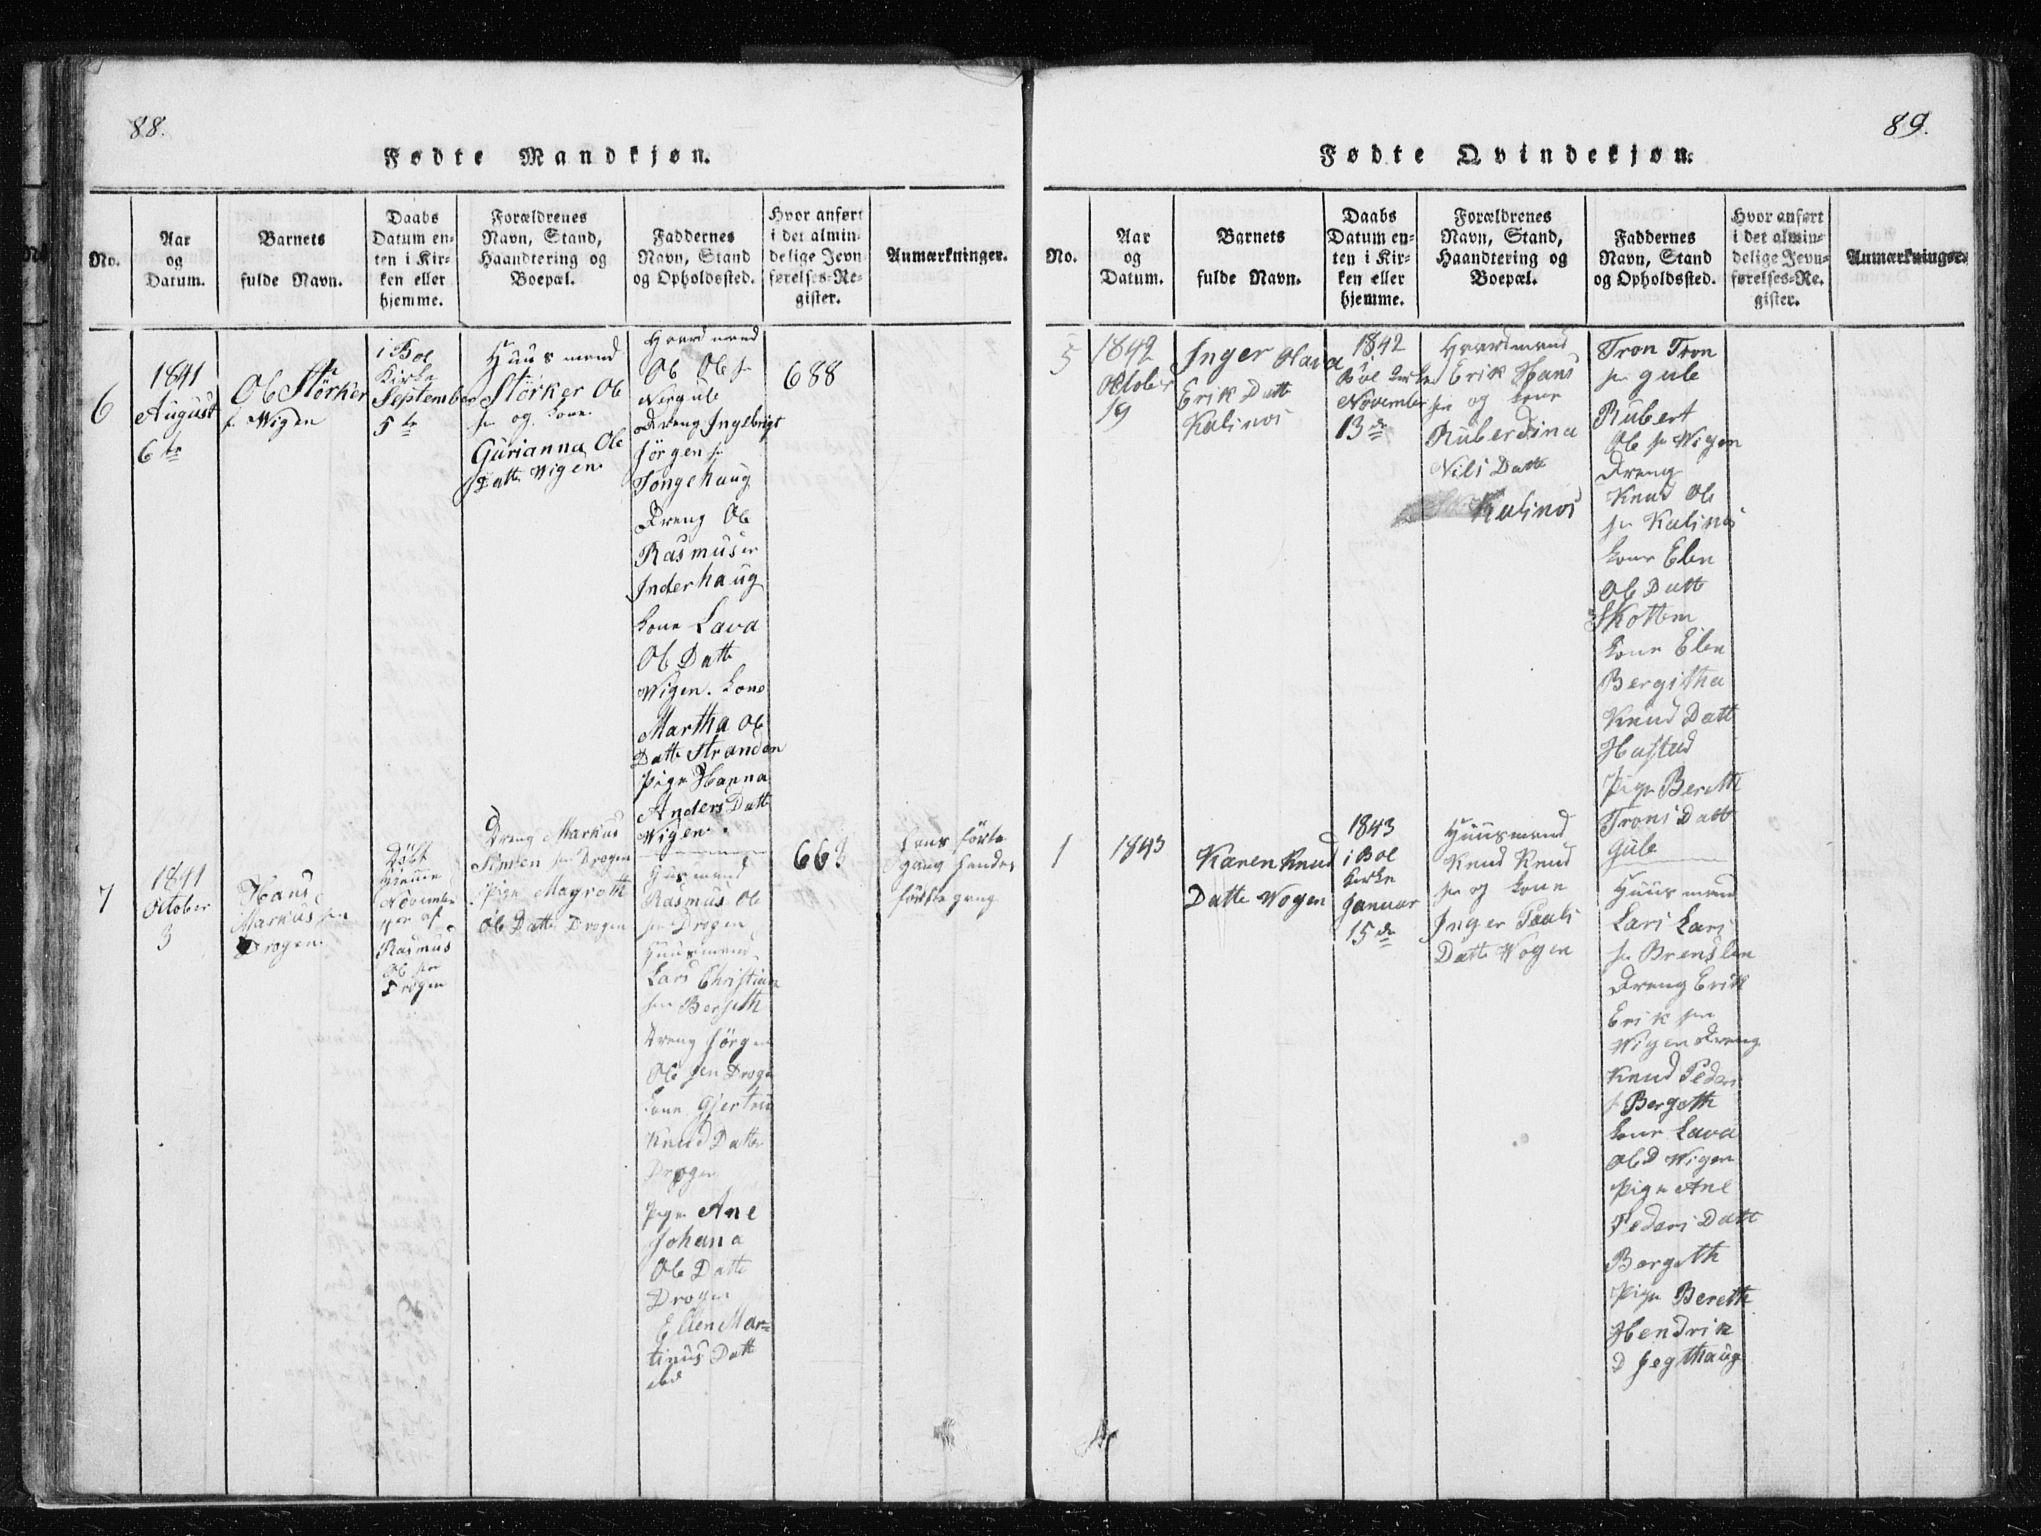 88.
Fødte Mandkjøn.
No.
Aar
og
Datum.
Barnets
fulde Navn.
Daabs
Datum en-
ten i Kir-
ken eller
hjemme.
Forældrenes
Navn, Stand,
Haandtering og
Boepæl.
Faddernes
Navn, Stand
og Opholdssted.
Hvor anført
i det almin-
delige Jevn-
førelses-Re-
gister.
Anmærkninger.
6
1841
August
6te
Ole Störker
s. Wigen
i Boe
Kirke
September
5te
Huusmend
Störker Ole
sn og kone
Gurianna Ole
Datte Wigen
Ole Ole sn
Nirgule
Dreng Ingebrigt
Jörgen sn
Tongehaug
Dreng Ole
Rasmuser
Inderhaug
kone Lava
Ole Datte
Wigen. kone
Martha Ole
Datte Stranden
Pige Hanna
Anders Datte
Wigen.
688
7
1841
October
3
Hans
Markus sen
Drogen
Döbt
hjemme
November
af
Rasmus
Ole sen
Drogen
Dreng Markus
Simsen sn Drogen
Pige Magroth
Ole Datte Drogen
Husmend
Rasmus Ole
sn Drogen
Huusmend
Lars Christian
sen Berseth
Dreng Jörgen
Ole sen Drogen
kone Gjertru
Knud Datte
Drogen
Pige Ane
Johana
Ole Datte
Drogen
Ellen Mar=
tinus Datt
ibd
hans förte
gang hendes
förste gang
89.
Fødte Qvindekjøn.
No.
Aar
og
Datum.
Barnets
fulde Navn.
Daabs
Datum en-
ten i Kir-
ken eller
hjemme.
Forældrenes
Navn, Stand,
Haandtering og
Boepæl.
Faddernes
Navn, Stand
og Opholdssted.
Hvor anført
i det almin-
delige Jevn-
førelses-Re-
gister.
Anmærkninger.
5
1842
Oktober
19
Inger Olava
Erik Datt
Kalinvs
1842
Boe kirke
November
13de
Erik Hans
sn og kone
Ruberdina
Nils Datt
Kalinvs
Tron Tron
sn Gule
Rubert
Ole sn Wigen
Dreng
Knud Ole
sn Kalinvs
kone Elen
Ole Datte
Skottem
kone Elen
Bergitha
Knud Datt
Hastad
Pige Bereth
Trons Datt
Gule
1
1843
Karen Knud
Datte Wogen
1843
i Boe
kirke
Januar
15de
Huusmend
Knud Knud
sn og kone
Inger Pauls
Datte Wogen
Huusmend
Lars Lars
sn Brenslen
Dreng Erik
Erik sen
Wigen Dreng
Knud Peders
s Bergeth
kone Lava
Ole D Wigen
Pige Ane
Peders Datt
Bergeth
Pige Bereth
Hendrik
D Jegthaug